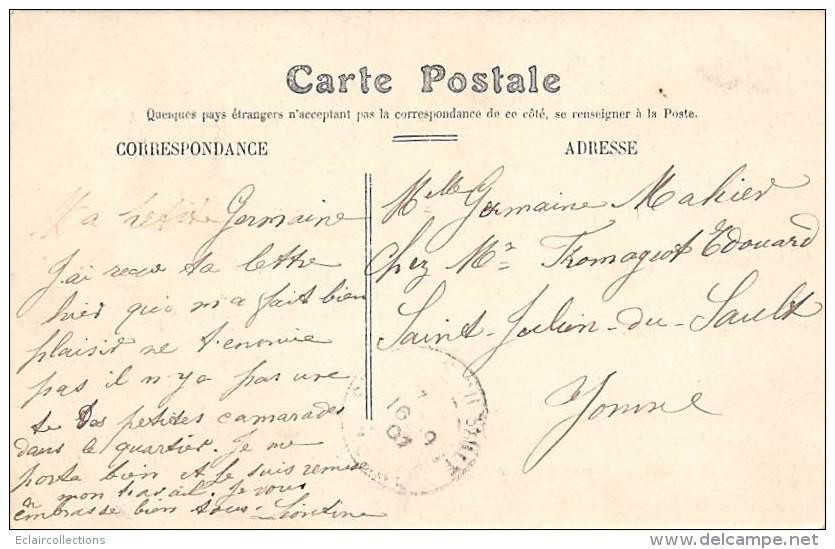 Carte Postale
Quelques pays étrangers n'acceptant pas la correspondance de ce côté, se renseigner à la Poste.
CORRESPONDANCE
ADRESSE
Ma petite Germaine
J'ai reçu ta lettre
hier qui m'a fait bien
plaisir ne t'ennuie
pas il n'y a pas une
de tes petites camarades
dans le quartier. Je me
porte bien et je suis remise
à mon travail. Je vous
embrasse bien tous. Léontine
Melle Germaine Mahier
Chez Mr Fromageot Edouard
Saint-Julien-du-Sault
Yonne
16 9
07
Eclaircollections
www.delcampe.net